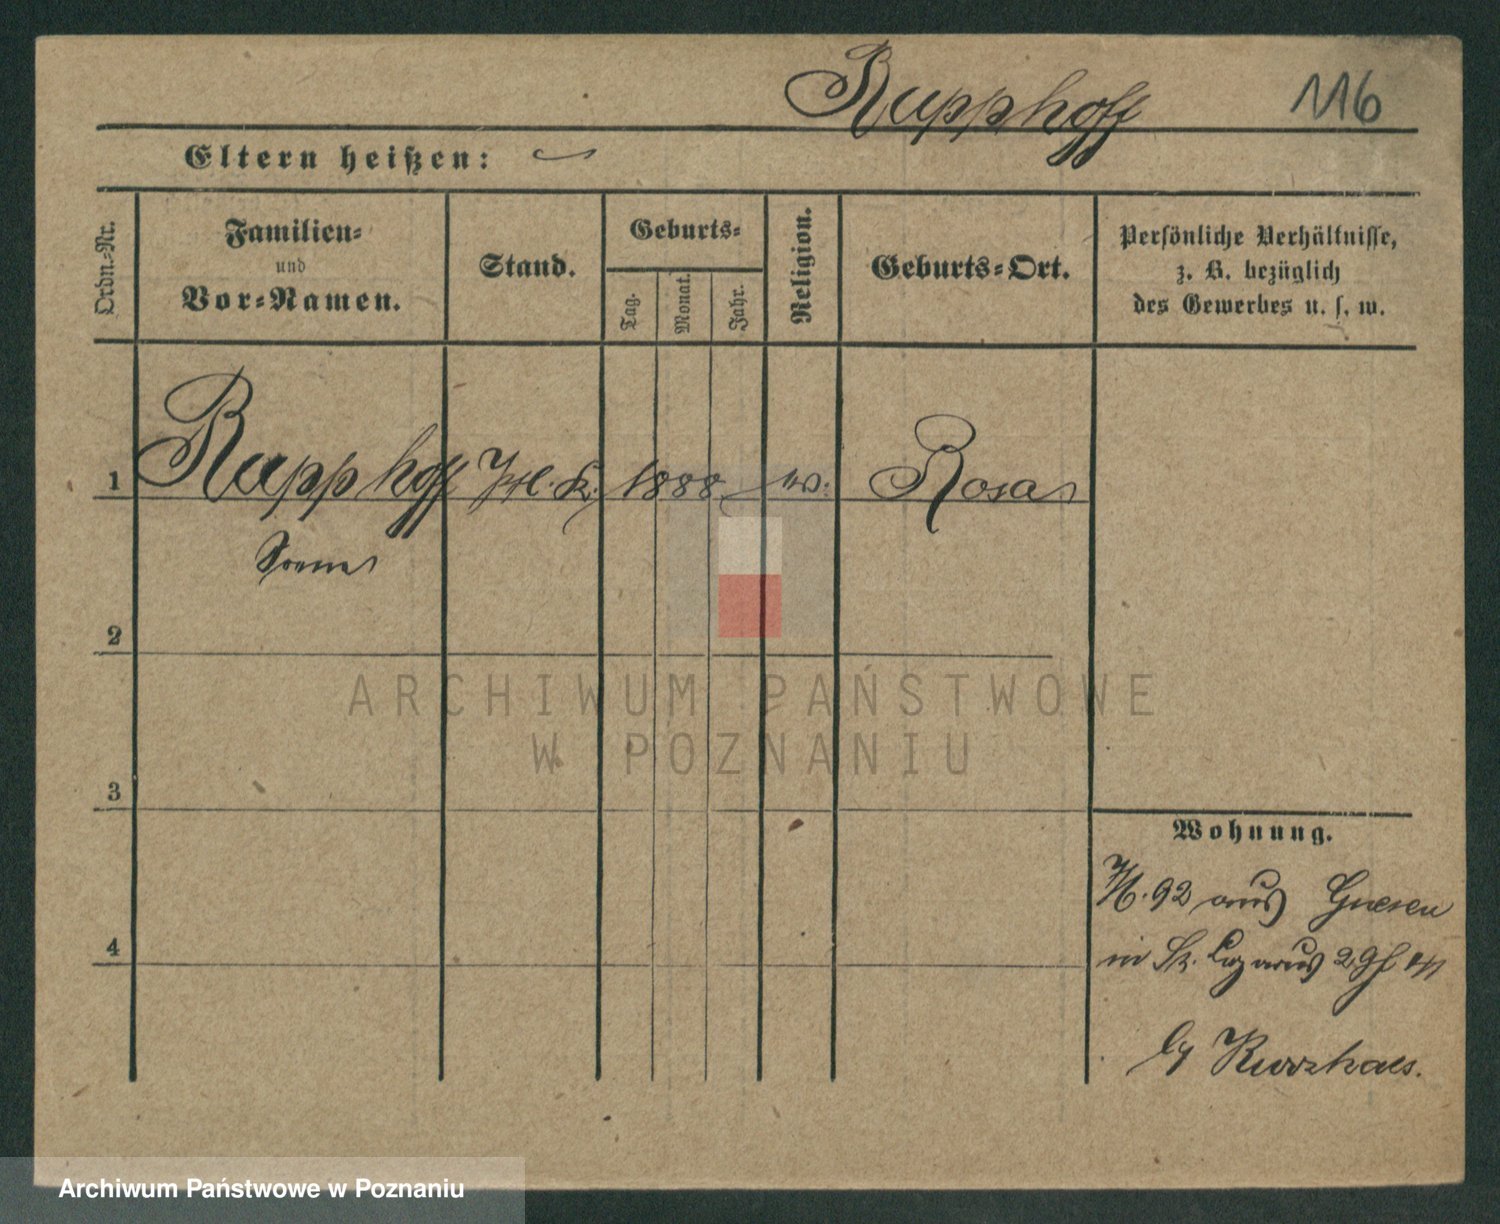 Rapphoff 116
Eltern heißen:
Ordn.-Nr.
Familien-
und
Vor-Namen.
Stand.
Geburts-
Tag.
Monat.
Jahr.
Religion.
Geburts-Ort.
Persönliche Verhältnisse,
z. B. bezüglich
des Gewerbes u. s. w.
1 Rapphoff 1888 Rosa
2
3
4
Wohnung.
92 aus Gnesen
in St. Lazarus
Kurzhals.
ARCHIWUM PAŃSTWOWE
W POZNANIU
Archiwum Państwowe w Poznaniu